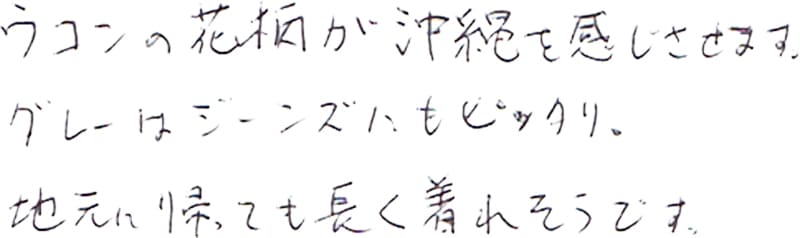 ウコンの花柄が沖縄を感じさせます。
グレーはジーンズにもピッタリ。
地元に帰っても長く着れそうです。